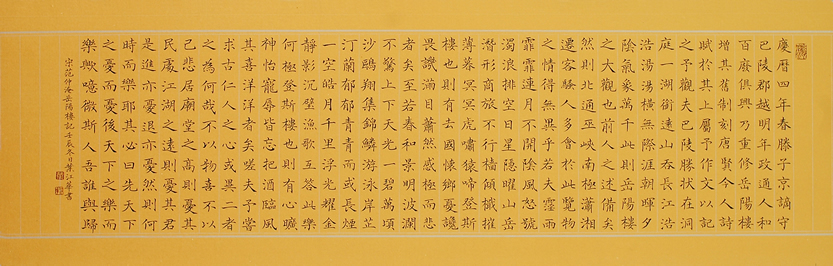 慶曆四年春滕子京謫守
巴陵郡越明年政通人和
百廢俱興乃重修岳陽樓
增其舊制刻唐賢今人詩
賦於其上屬予作文以記
之予觀夫巴陵勝狀在洞
庭一湖銜遠山吞長江浩
浩湯湯橫無際涯朝暉夕
陰氣象萬千此則岳陽樓
之大觀也前人之述備矣
然則北通巫峽南極瀟湘
遷客騷人多會於此覽物
之情得無異乎若夫霪雨
霏霏連月不開陰風怒號
濁浪排空日星隱曜山岳
潛形商旅不行檣傾楫摧
薄暮冥冥虎嘯猿啼登斯
樓也則有去國懷鄉憂讒
畏譏滿目蕭然感極而悲
者矣至若春和景明波瀾
不驚上下天光一碧萬頃
沙鷗翔集錦鱗游泳岸芷
汀蘭郁郁青青而或長煙
一空皓月千里浮光耀金
靜影沉璧漁歌互答此樂
何極登斯樓也則有心曠
神怡寵辱皆忘把酒臨風
其喜洋洋者矣嗟夫予嘗
求古仁人之心或異二者
之為何哉不以物喜不以
己悲居廟堂之高則憂其
民處江湖之遠則憂其君
是進亦憂退亦憂然則何
時而樂耶其必曰先天下
之憂而憂後天下之樂而
樂歟噫微斯人吾誰與歸
宋范仲淹岳陽樓記壬辰冬日葉江華書